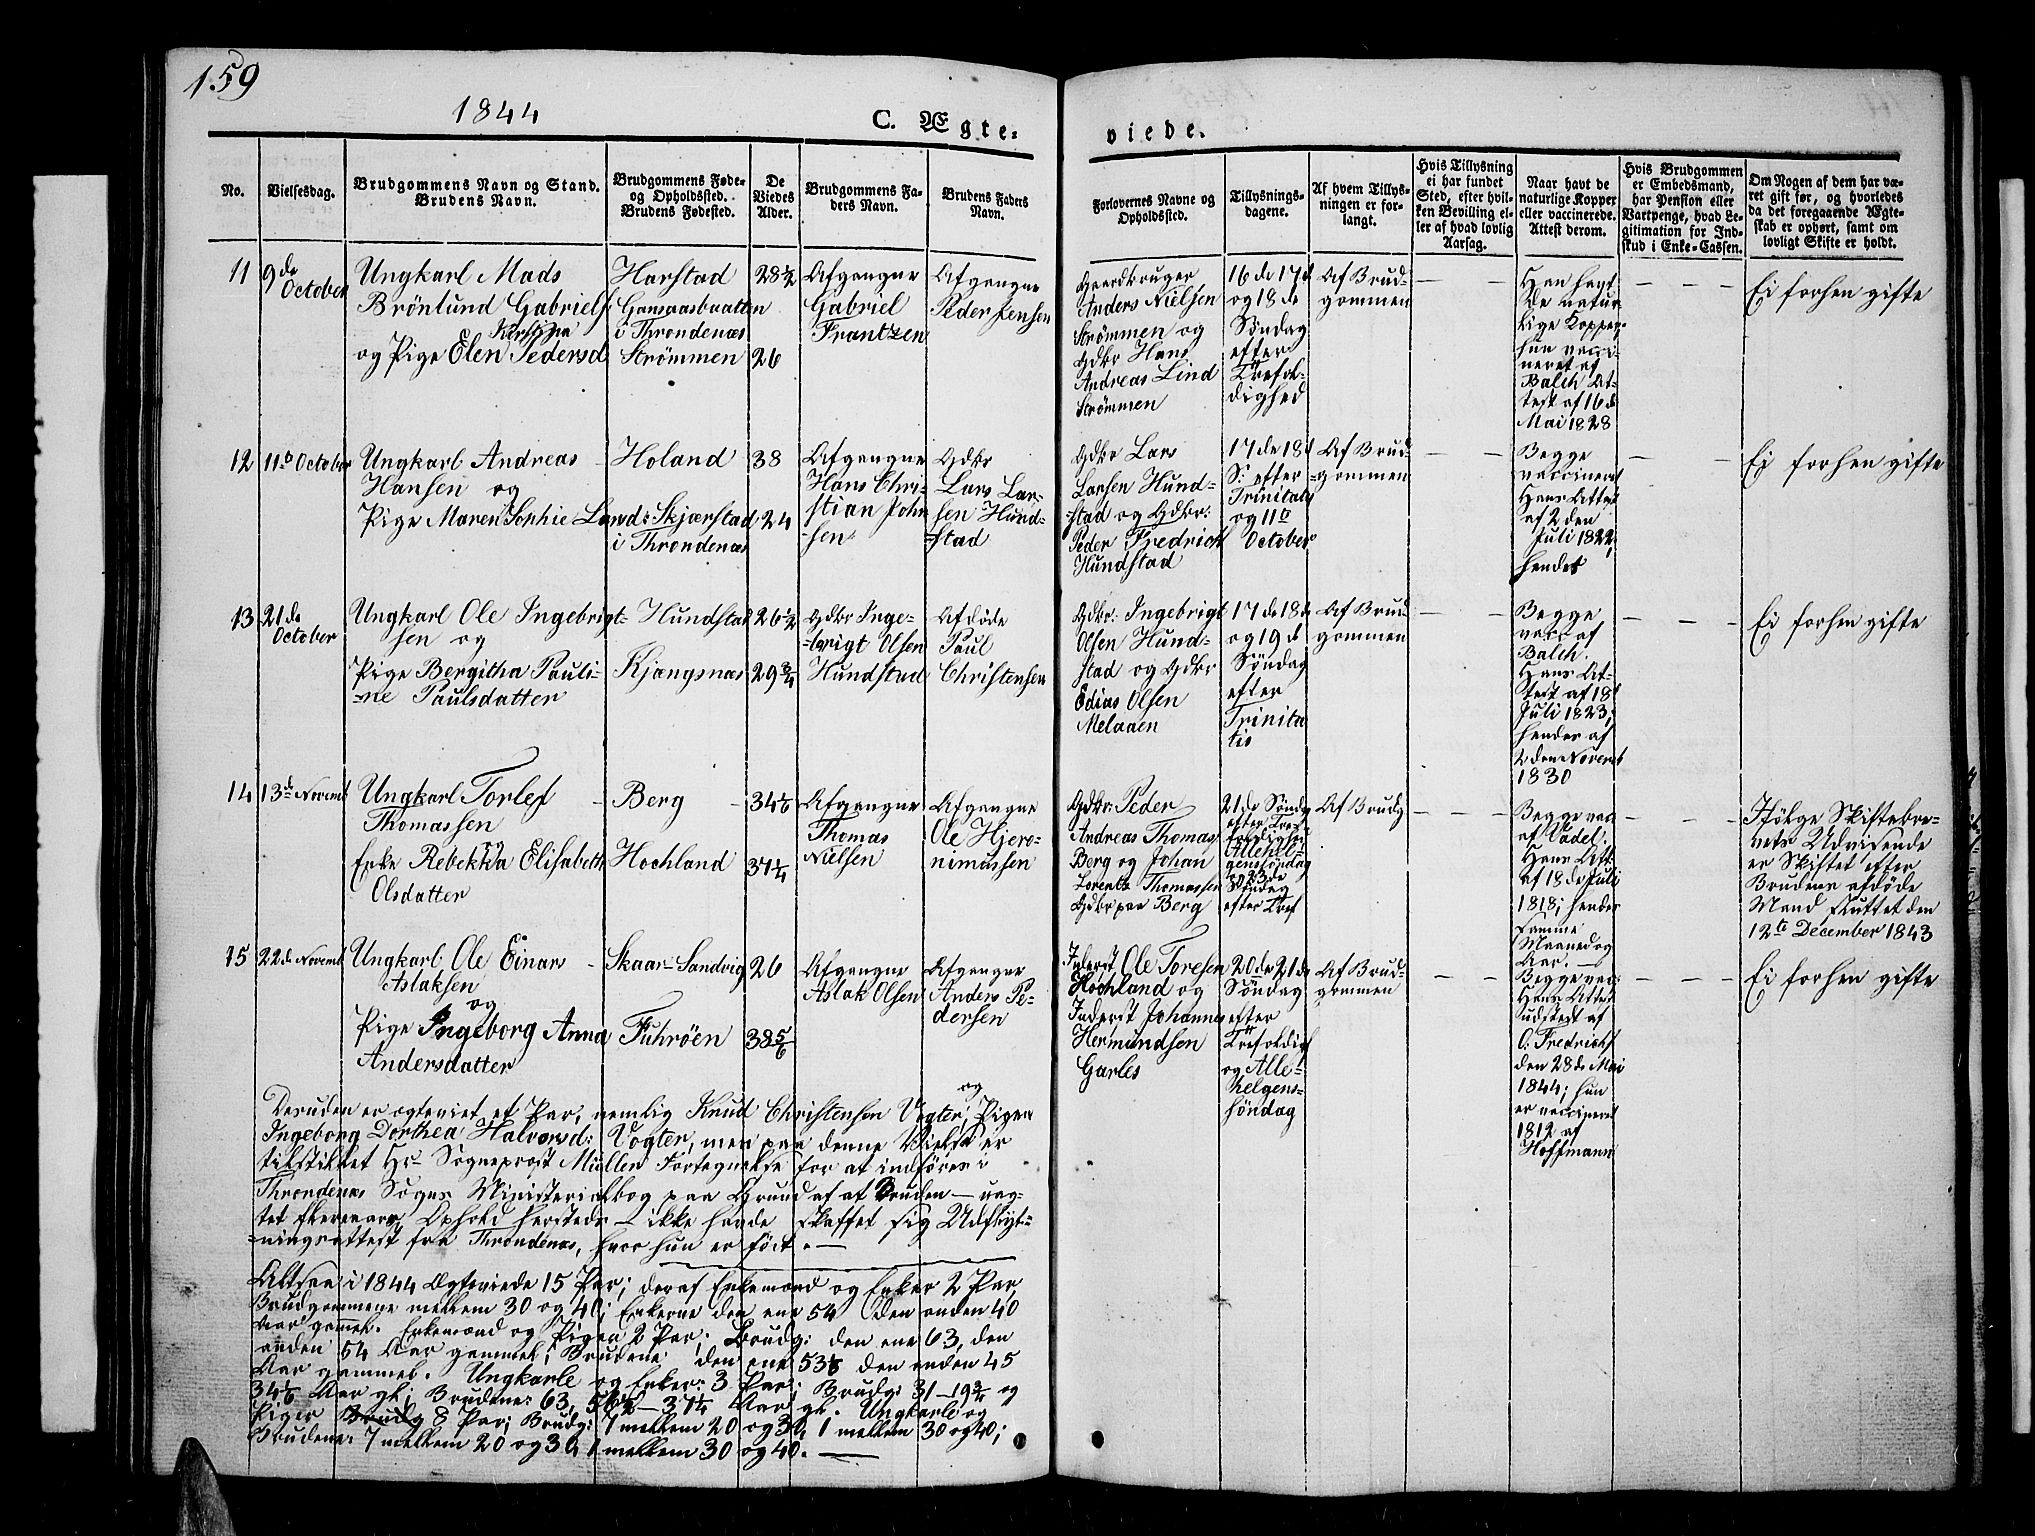 159
1844
C. Ægte-
viede.
No.
Vielsesdag.
Brudgommens Navn og Stand.
Brudens Navn.
Brudgommens Føde-
og Opholdssted.
Brudens Fødested.
De
Viedes
Alder.
Brudgommens Fa-
ders Navn.
Brudens Faders
Navn.
Forlovernes Navne og
Opholdssted.
Tillysnings-
dagene.
Af hvem Tillys-
ningen er for-
langt.
Hvis Tillysning
ei har fundet
Sted, efter hvil-
ken Bevilling el-
ler af hvad lovlig
Aarsag.
Naar havt de
naturlige Kopper
eller vaccinerede.
Attest derom.
Hvis Brudgommen
er Embedsmand,
har Pension eller
Vartpenge, hvad Le-
gitimation for Ind-
skud i Enke-Cassen.
Om Nogen af dem har væ-
ret gift før, og hvorledes
da det foregaaende Ægte-
skab er ophørt, samt om
lovligt Skifte er holdt.
11
9de
October
Ungkarl Mads
Brönlund Gabriels:
Kirstina
og Pige Elen Pedersd
Harstad
Gansaasbaatten
i Throndenæs
Strömmen
28 1/2
26
Afgangne
Gabriel
Frantzen
Afgangne
Peder Jensen
Gaardbruger
Anders Nielsen
Strömmen og
Gdbr Hans
Andreas Lind
Strömmen
16de 17d
og 18de
Søndag
efter
Trefol-
dighed
Af Brud-
gommen
Han havt
de natur-
lige Kopper
hun vacci-
neret af
Balch At-
test af 16d
Mai 1828
Ei forhen gifte
12
11te October
Ungkarl Andreas
Hansen og
Pige Maren Sophie Larsd:
Holand
Skjærstad
i Throndenæs
38
24
Afgangne
Hans Chri-
stian John
-sen
Gdbr
Lars Lar-
sen Hund-
-stad
Gdbr Lars
Larsen Hund-
-stad og Gdbr:
Peder Fredrich
Hundstad
17de 18d
S: efter
Trinitats
og 11te
October
Af Brud-
-gommen
Begge
vaccineret
Hans Attest
af 2den
Juli 1822,
hendes
Ei forhen gifte
13
21de
October
Ungkarl Ole Ingebrigt-
sen og
Pige Bergitha Pauli-
-ne Paulsdatter
Hundstad
Kjængsnæs
26 1/2
29 3/4
Gdbr Inge-
-brigt Olsen
Hundstad
Afdøde
Paul
Christensen
Gdbr: Ingebrigt
Olsen Hund-
stad og Gdbr
Edias Olsen
Melaaen
17de 18de
og 19d
Søndag
efter
Trinita
tis
Af Brud-
gommen
Begge
vacc af
Balch.
Hans At-
test af 18d
Juli 1823;
hendes af
2den Novemb
1830
Ei forhen gifte
14
13de Novemb
Ungkarl Torlef
Thomassen
Enke Rebekka Elisabeth
Olsdatter
Berg
Hochland
34 1/6
37 1/4
Afgangne
Thomas
Nielsen
Afgangne
Ole Hjero-
nimussen
Gdbr: Peder
Andreas Thomass
Berg og Johan
Lorentz Thomassen
Gdbr paa Berg
21de Søndag
efter Tref
foldighed
Allehel-
genssøndag
og 23de
Søndag
efter Tref
Af Brudg
Begge vac
af Vadel.
Hans Att.
af 18de Juli
1818; hendes
samme
Maaned og
Aar.
Ifölge Skiftebre-
vets Udvisende
er Skiftet efter
Brudens afdöde
Mand sluttet den
12te December 1843
15
22de Novemb
Ungkarl Ole Einar
Aslaksen
og
Pige Ingeborg Anna
Andersdatter
Skaar-Sandvig
Fuhröen
26
38 5/6
Afgangne
Aslak Olsen
Afgangne
Anders Pe-
dersen
Inderst Ole Toresen
Hochland og
Inderst Johannes
Hermundsen
Garles
20de 21de
Søndag
efter
Trefoldigh
og Alle-
helgens-
söndag
Af Brud-
gommen
Begge vac:
Hans Attest
udstedt af
O. Fredrichs
den 28de Mai
1844; hun
er vaccineret
1812 af
Hoffmann
Ei forhen gifte
Desuden er ogteviet et Par, nemlig Knud Christensen Vogter, og Pigen
Ingeborg Dorthea Halvorsd: Vogter, men paa denne Vielse er
tilstillet Hr Sogneprost Müller Fortegnelse for at indföres i
Throndenæs Sogns Ministerialbog paa Grund af at Bruden – uag-
tet flereaars Ophold hersteds – ikke havde skaffet sig Udflyt-
-ningsattest fra Throndenæs, hvor hun er födt. –
Altsaa i 1844 Ægteviede 15 Par; deraf Enkemænd og Enker 2 Par,
Brudgommene mellem 30 og 40; Enkerne den ene 54 den anden 40
Aar gammel. Enkemænd og Pigen 2 Par; Brudg: den ene 63, den
anden 54 Aar gammel; Brudene den ene 53 1/6 den anden 45
Aar gammel. Ungkarle og Enker: 3 Par; Brudg: 31 – 19 3/4 og
34 1/6 Aar gl; Brudene: 63, 56 1/2 – 37 1/4 Aar gl. Ungkarle og
Piger Brudg 8 Par; Brudg: 7 mellem 20 og 30, 1 mellem 30 og 40;
Brudene: 7 mellem 20 og 30, 1 mellem 30 og 40. –